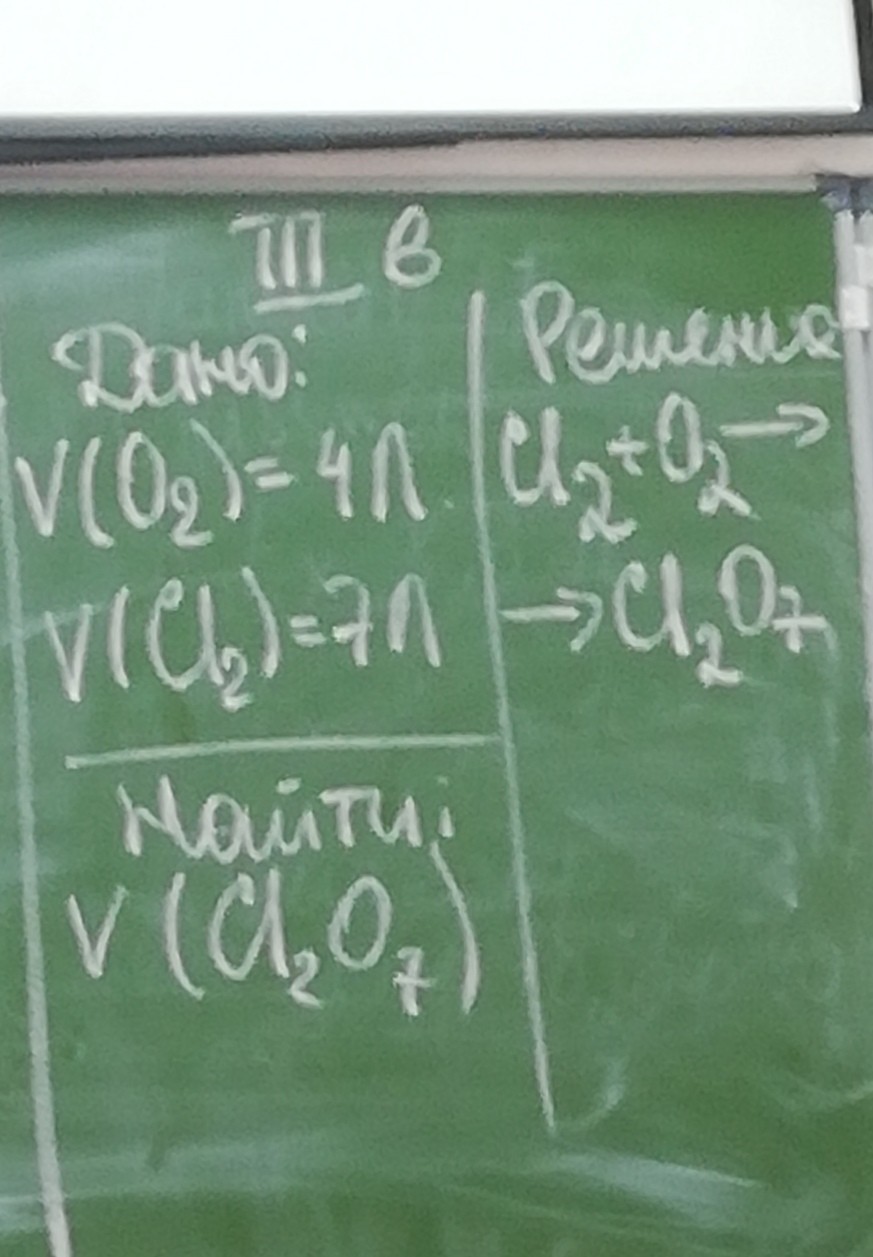 III в
Дано:
V(O₂)=4л
V(Cl₂)=7л
Найти:
V(Cl₂O₇)
Решение
Cl₂+O₂→
→Cl₂O₇